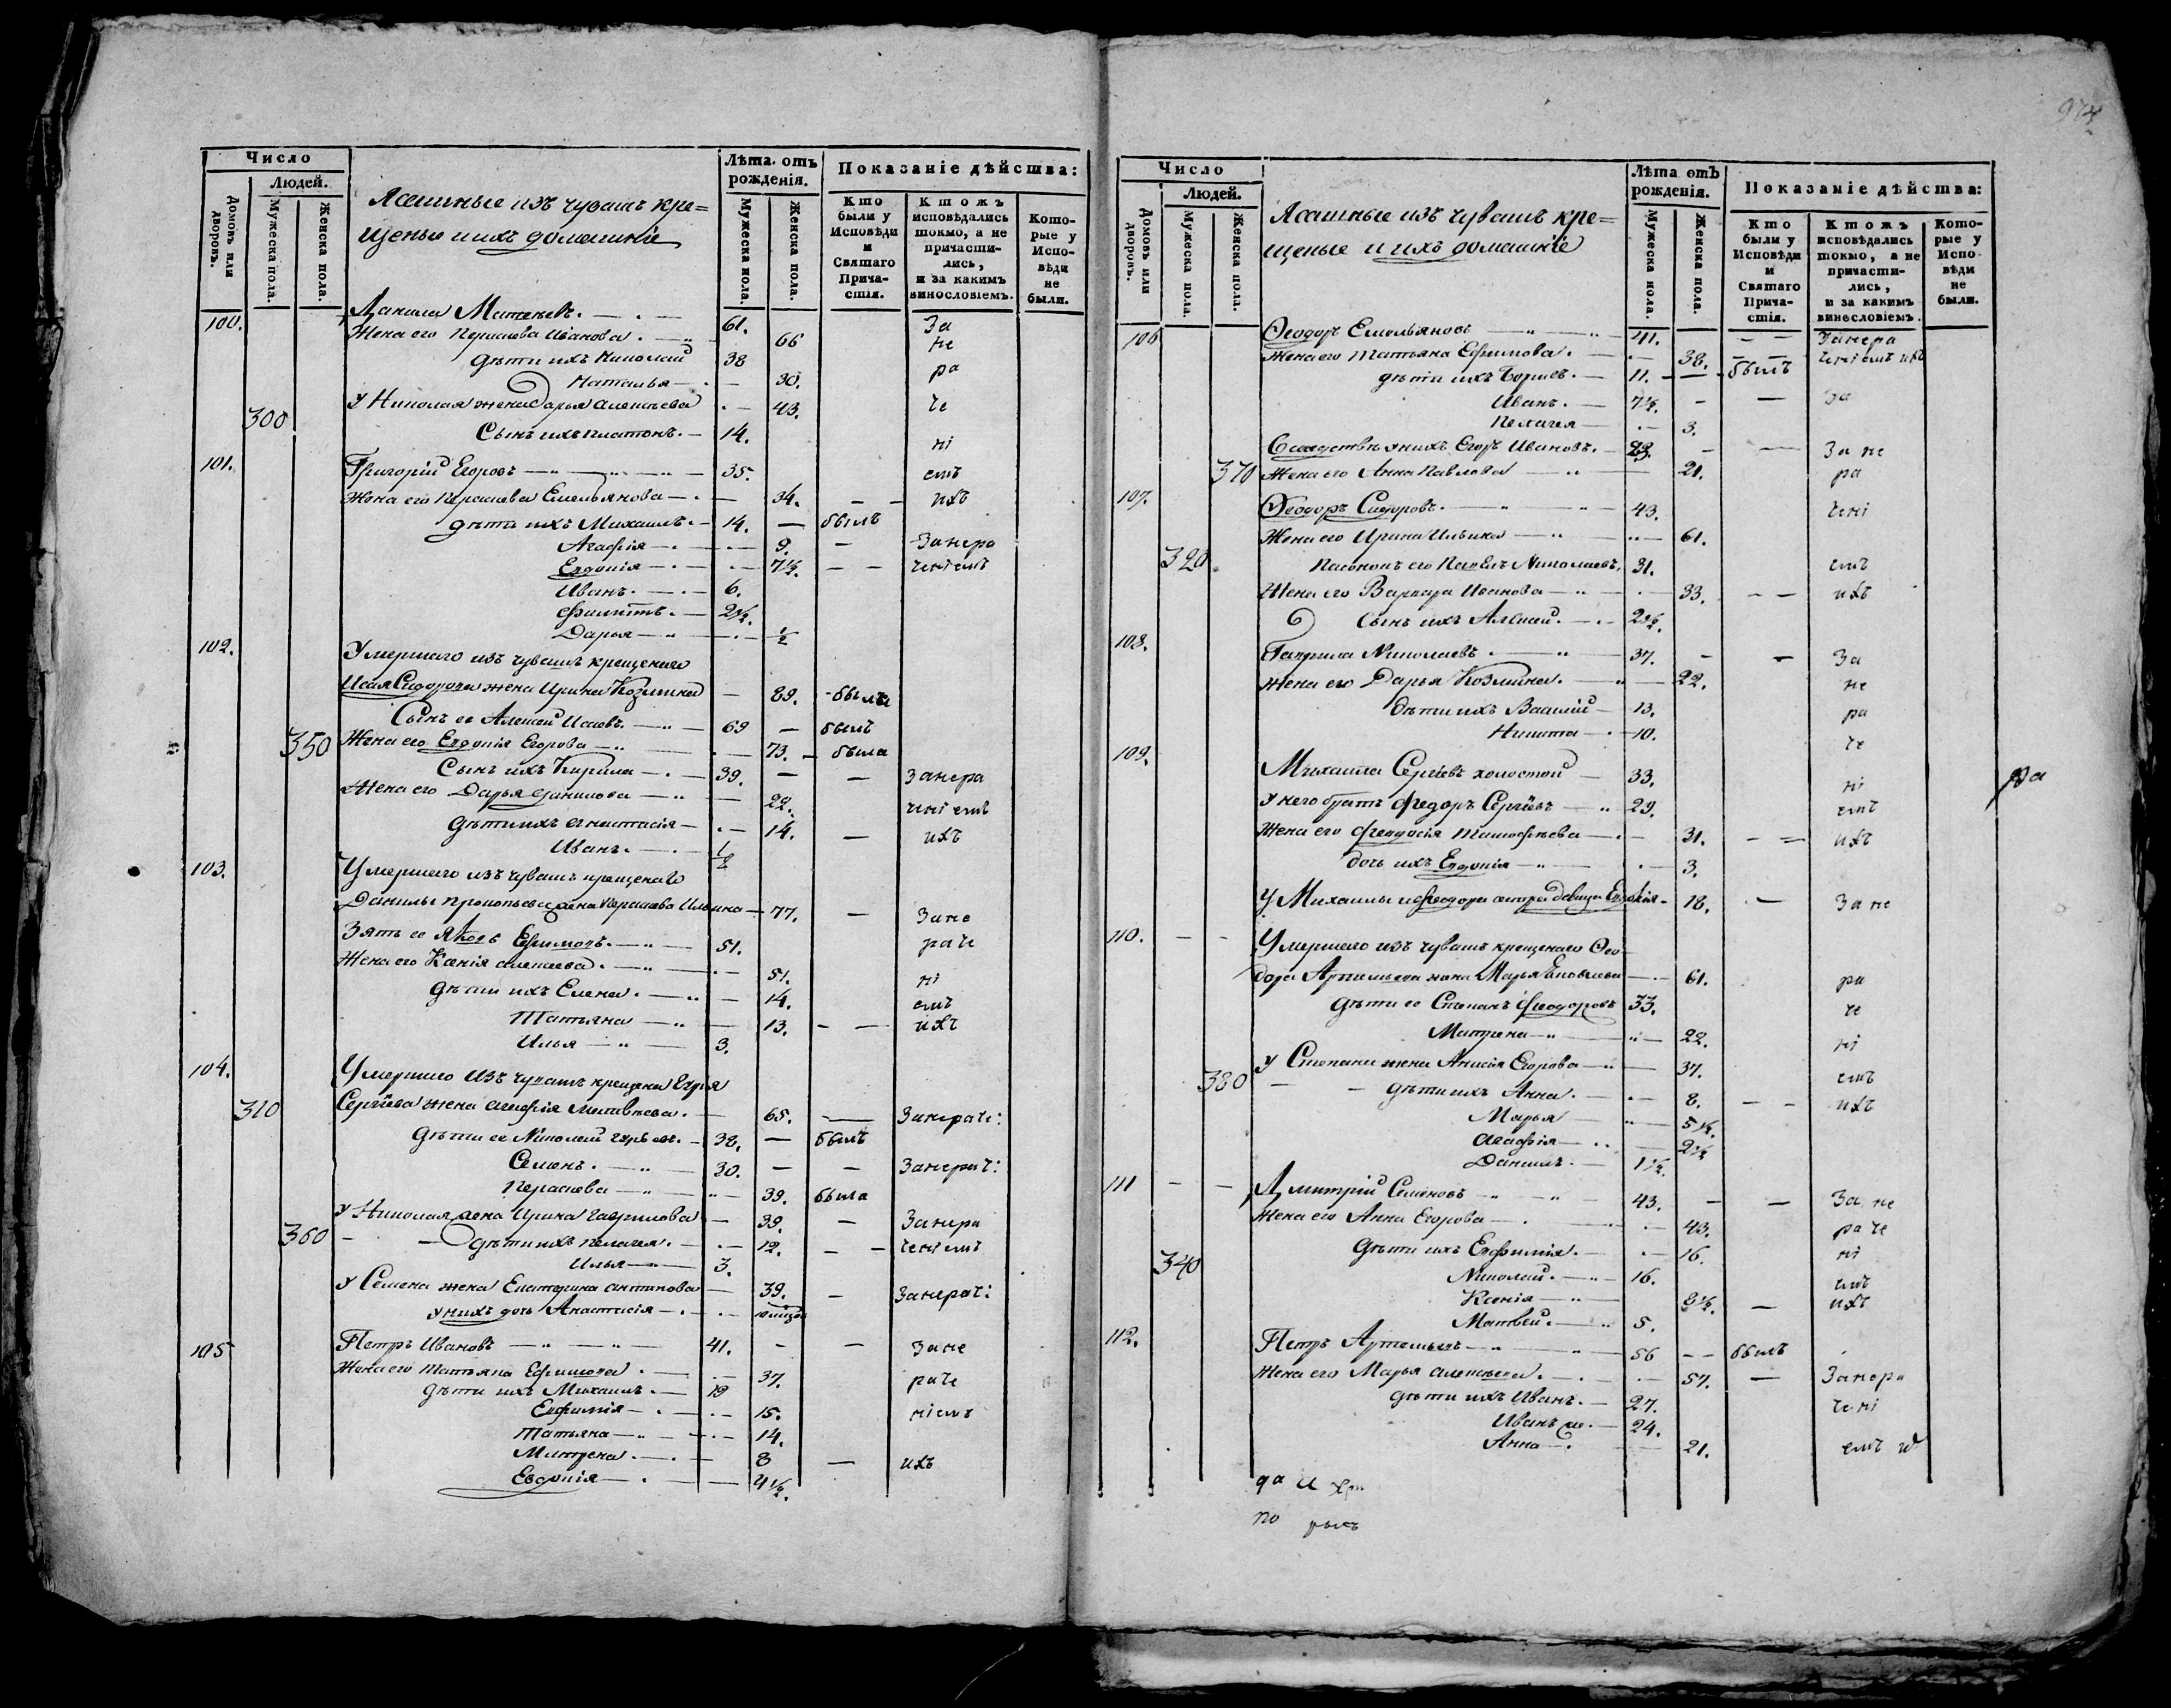 Число
Людей.
Домовъ или дворовъ.
Мужеска пола.
Женска пола.
Ясашные изъ чувашъ кре=
щеные и ихъ домашнiе
Лѣта. отъ рожденiя.
Мужеска пола.
Женска пола.
Показанiе дѣйства:
Кто были у Исповѣди и Святаго Прича-стiя.
Ктожъ исповѣдались токмо, а не причасти-лись, и за какимъ винословіемъ.
Кото-рые у Испо-вѣди не были.
100. Данила Матвѣевъ. 61. За
Жена его Иванова. 66 не
дѣти ихъ Николай 38
Наталья 30. ра
300 У Николая жена Дарья Алексѣева 43. че
Сынъ ихъ Платонъ. 14. нi
101. Григорiй Егоровъ 35. емъ
Жена его Емельянова 34. ихъ
дѣти ихъ Михаилъ. 14. былъ
Агафiя 9. Занера
Евдокiя 7½. ченiемъ
Иванъ. 6.
Филиппъ. 2½.
Дарья ½
102. Умершаго изъ чувашъ крещенаго
Исая Сидорова жена Ирина Козмина 89. была
Сынъ ее Алексей Исаевъ. 69 былъ
350 Жена его Евдокiя Егорова 73. была
Сынъ ихъ Кирила 39. Занера
Жена его Дарья Данилова 22. ченiемъ
дѣти ихъ Анастасiя 14. ихъ
Иванъ. ½
103. Умершаго изъ чувашъ крещенаго
Данилы Прокопьева жена Ильина 77. Зане
Зять ее Яковъ Ефимовъ. 51. раче
Жена его Ксенiя Алексеева. 51. нi
дѣти ихъ Елена. 14. емъ
Татьяна 13. ихъ
Илья 3.
104. Умершаго изъ чувашъ крещена
310 Сергѣева жена Агафiя Матвѣева. 65. Занераче:
дѣти ее Николай 38. былъ
Семенъ. 30. Занерач:
39. была
У Николая жена Ирина Гаврилова 39. Занера
360 дѣти ихъ Пелагея. 12. ченiемъ
Илья 3.
У Семена жена Екатерина Антипова 39. Занерач:
у нихъ дочь Анастасiя
105 Петръ Ивановъ 41. Зане
Жена его Татьяна Ефимова. 37. раче
дѣти ихъ Михаилъ. 19
Евфимiя 15. нiемъ
Татьяна 14.
Матрена 8 ихъ
Евдокiя 4½.
974
Число
Людей.
Домовъ или дворовъ.
Мужеска пола.
Женска пола.
Ясашные изъ чувашъ кре=
щеные и ихъ домашнiе
Лѣта отЪ рожденiя.
Мужеска пола.
Женска пола.
Показанiе дѣйства:
Кто были у Исповѣди и Святаго Прича-стiя.
Ктожъ исповѣдались токмо, а не причасти-лись, и за какимъ винословіемъ.
Кото-рые у Испо-вѣди не были.
106 Ѳеодоръ Емельяновъ 41. Занера
Жена его Татьяна Ефимова. 38. ченiемъ ихъ
дѣти ихъ Борисъ. 11. былъ
Иванъ. 7½. За
Пелагея 3.
Егоръ Ивановъ. За не
370 Жена его Анна Павлова 21. ра
107. Ѳеодоръ Сидоровъ. 43. ченi
Жена его Ирина Ильина 61.
320 Пасынокъ его Павелъ Николаевъ. 31. емъ
Жена его Варвара Иванова 33. ихъ
Сынъ ихъ Алексей. 2½.
108. Гаврила Николаевъ 37. За
Жена его Дарья Козмина. 22. не
дѣти ихъ Василiй 13. ра
Никита 10. че
109. Михаила Сергѣевъ холостой 33. нi
У него братъ Федоръ Сергѣевъ 29. емъ
Жена его Феодосiя Тимофѣева 31. ихъ
дочь ихъ Евдокiя 3.
У Михаилы и Феодора сестра девица 18. За не
110. Умершаго изъ чувашъ крещенаго Ѳео
дора Артемьева жена Марья Яковлева 61. ра
дѣти ее Степанъ Феодоровъ 33. че
Матрена 22. нi
У Степана жена Анисiя Егорова 37. емъ
380 дѣти ихъ Анна. 8. ихъ
Марья 5½.
Агафiя 2½
Данилъ. 1½.
111 Дмитрiй Семеновъ 43. За не
Жена его Анна Егорова 43. раче
дѣти ихъ Евфимiя. 16. нi
340 Николай. 16. емъ
Ксенiя 8½. ихъ
Матвѣй. 5.
112. Петръ Артемьевъ 56 былъ
Жена его Марья Алексѣева. 57. Занера
дѣти ихъ Иванъ. 27. ченi
Иванъ 24.
Анна 21. емъ